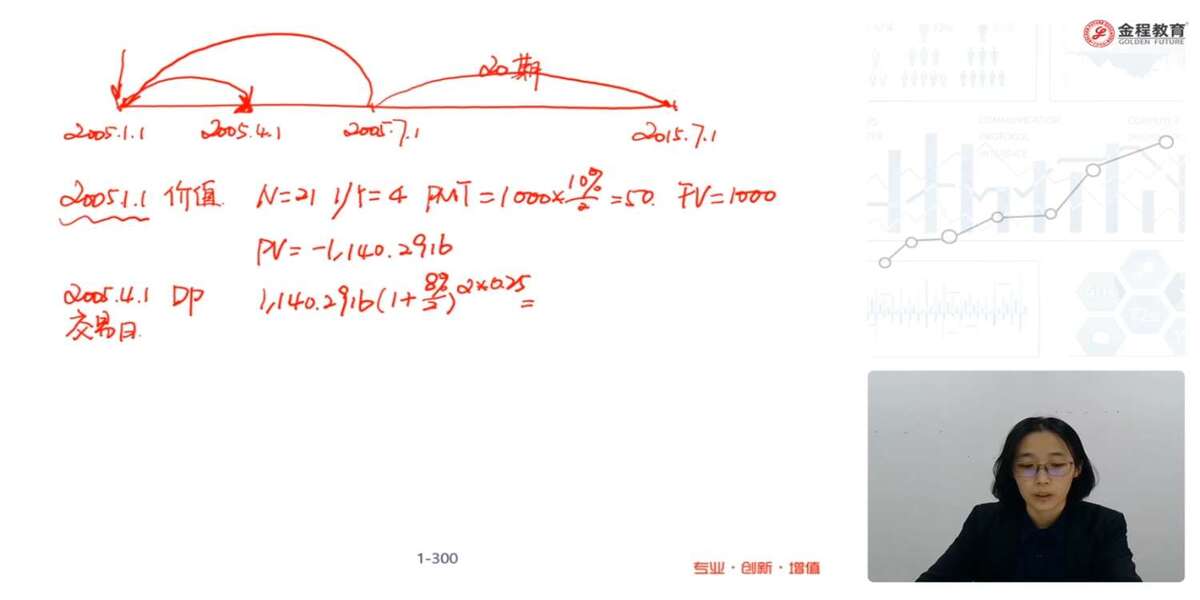 金程教育
GOLDEN FUTURE
20期
2005.1.1 2005.4.1 2005.7.1 2015.7.1
2005.1.1 价值 N=21 I/Y=4 PMT=1000×10%/2=50. FV=1000
PV=-1,140.2916
2005.4.1 DP 1,140.2916(1+8%/2)^2×0.25=
交易日.
1-300
专业·创新·增值